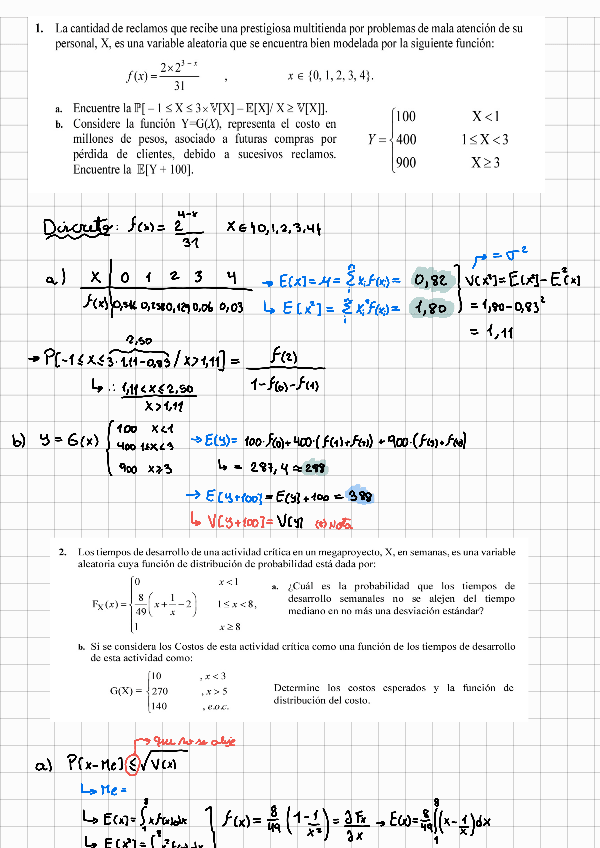 1. La cantidad de reclamos que recibe una prestigiosa multitienda por problemas de mala atención de su
personal, X, es una variable aleatoria que se encuentra bien modelada por la siguiente función:
f(x) = 2×2^(3−x) / 31 , x ∈ {0, 1, 2, 3, 4}.
a. Encuentre la ℙ[ – 1 ≤ X ≤ 3×𝕍[X] – E[X]/ X ≥ 𝕍[X]].
b. Considere la función Y=G(X), representa el costo en
millones de pesos, asociado a futuras compras por
pérdida de clientes, debido a sucesivos reclamos.
Encuentre la 𝔼[Y + 100].
Y = { 100 X < 1
400 1 ≤ X < 3
900 X ≥ 3
Discreta: f(x) = 2^(4-x) / 31 X ∈ {0,1,2,3,4}
a) X 0 1 2 3 4
f(x) 0,516 0,258 0,129 0,06 0,03
→ E[x] = μ = Σ xᵢ f(x) = 0,82
↳ E[x²] = Σ xᵢ² f(x) = 1,80
μ = σ²
V[x²] = E[x²] - E²[x]
= 1,80 - 0,83²
= 1,11
2,50
→ P[-1 ≤ x ≤ 3·1,11-0,83 / x > 1,11] = f(2) / 1-f(0)-f(1)
↳ ∴ 1,11 < x ≤ 2,50
x > 1,11
b) y = G(x) { 100 x<1
400 1≤x<3
900 x≥3
→ E(y) = 100·f(0) + 400·(f(1)+f(2)) + 900·(f(3)+f(4))
↳ = 287,4 ≈ 288
→ E[y+100] = E[y] + 100 = 388
↳ V[y+100] = V[y] (*) Nota
2. Los tiempos de desarrollo de una actividad crítica en un megaproyecto, X, en semanas, es una variable
aleatoria cuya función de distribución de probabilidad está dada por:
F_X(x) = { 0 x < 1
8/49 (x + 1/x − 2) 1 ≤ x < 8,
1 x ≥ 8
a. ¿Cuál es la probabilidad que los tiempos de
desarrollo semanales no se alejen del tiempo
mediano en no más una desviación estándar?
b. Si se considera los Costos de esta actividad crítica como una función de los tiempos de desarrollo
de esta actividad como:
G(X) = { 10 , x < 3
270 , x > 5
140 , e.o.c.
Determine los costos esperados y la función de
distribución del costo.
→ que no se aleje
a) P[x-Me] ≤ √V(x)
↳ Me =
↳ E[x] = ∫₁⁸ x f(x) dx
f(x) = 8/49 (1 - 1/x²) = ∂Fx/∂x → E(x) = 8/49 ∫₁⁸ (x - 1/x) dx
↳ E[x²] = ∫ x² f(x) dx